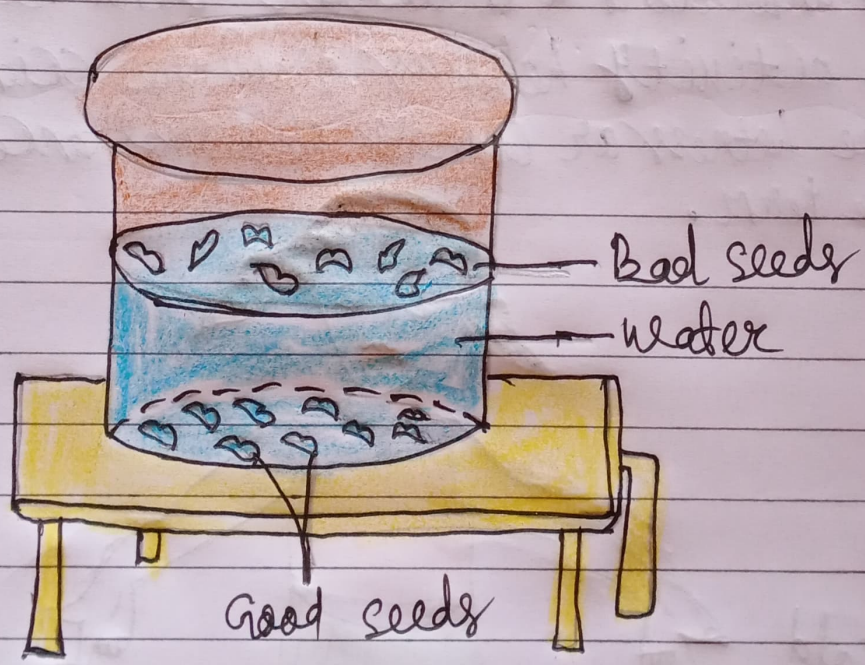 Bad seeds
water
Good seeds